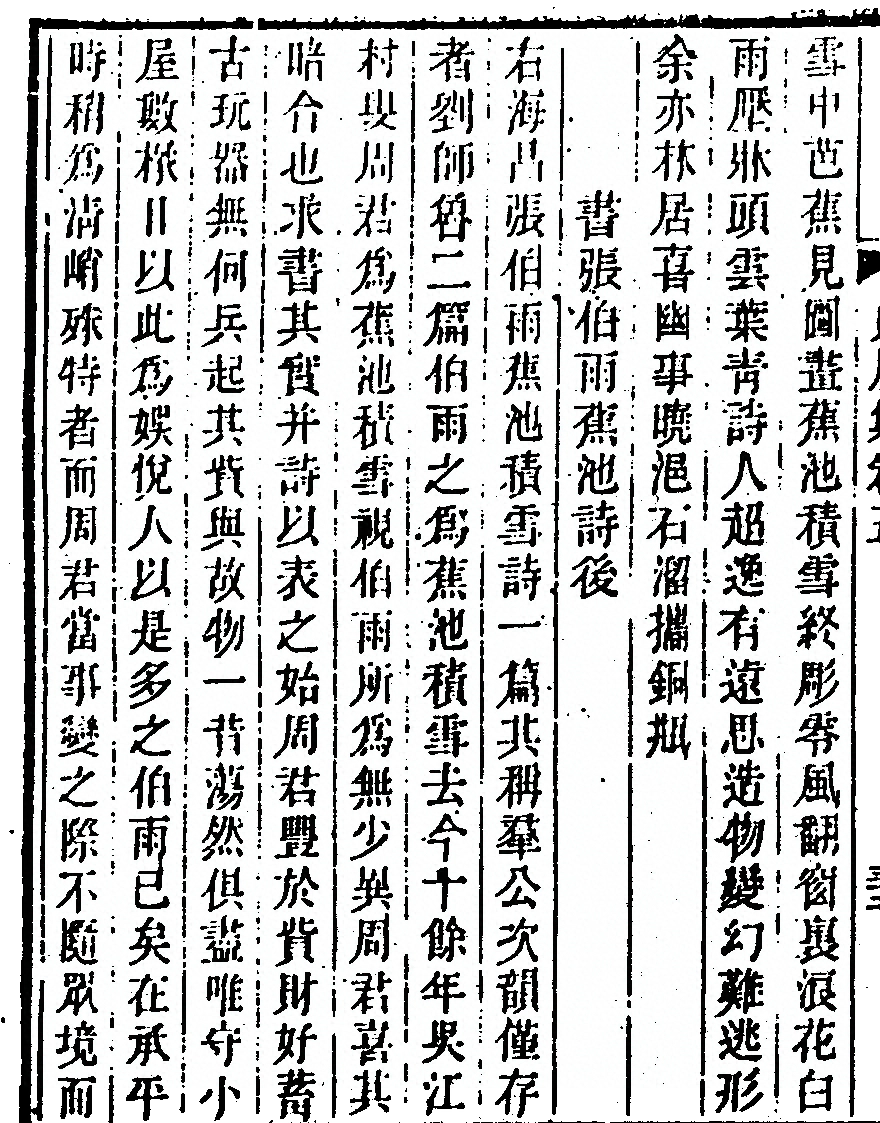 雪中芭蕉見圖畫蕉池積雪終彫零風翻窗裏浪花白
雨壓牀頭雲葉青詩人超逸有遠思造物變幻難逃形
余亦林居喜幽事曉浥石溜攜銅瓶
書張伯雨蕉池詩後
右海昌張伯雨蕉池積雪詩一篇其稱羣公次韻僅存
者劉師魯二篇伯雨之爲蕉池積雪去今十餘年吳江
村叟周君爲蕉池積雪視伯雨所爲無少異周君喜其
喑合也求書其實并詩以表之始周君豐於貲財好蓄
古玩器無何兵起其貲與故物一昔蕩然俱盡唯守小
屋數椽日以此爲娛悅人以是多之伯雨已矣在承平
時稍爲清峭殊特者而周君當事變之際不隨眾境而